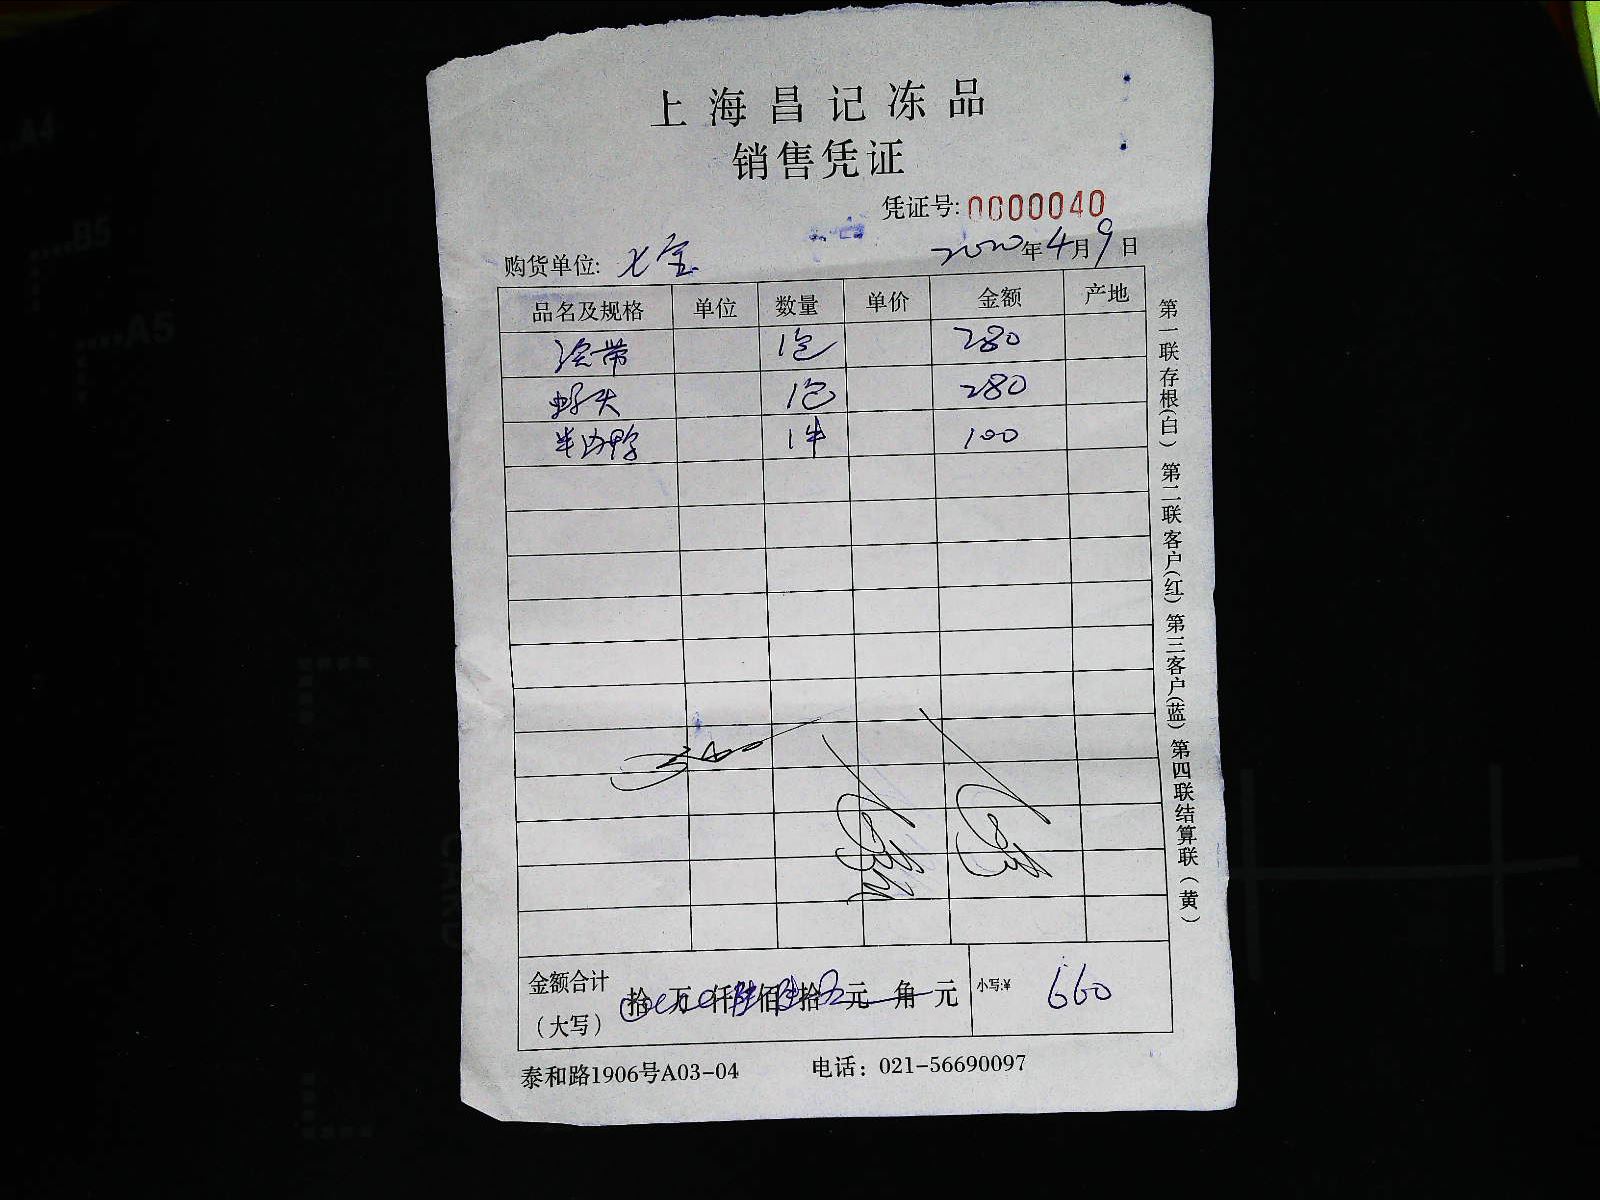 上海昌记冻品
销售凭证
凭证号:0000040
购货单位: 七宝 2020年4月9日
品名及规格 单位 数量 单价 金额 产地
海带 1包 280
虾头 1包 280
半边鸭 1件 100
金额合计 拾 万 仟陆佰陆拾 元 角 元 小写:¥ 660
(大写)
泰和路1906号A03-04 电话: 021-56690097
第一联存根(白) 第二联客户(红) 第三客户(蓝) 第四联结算联(黄)
A4
B5
A5
CARD